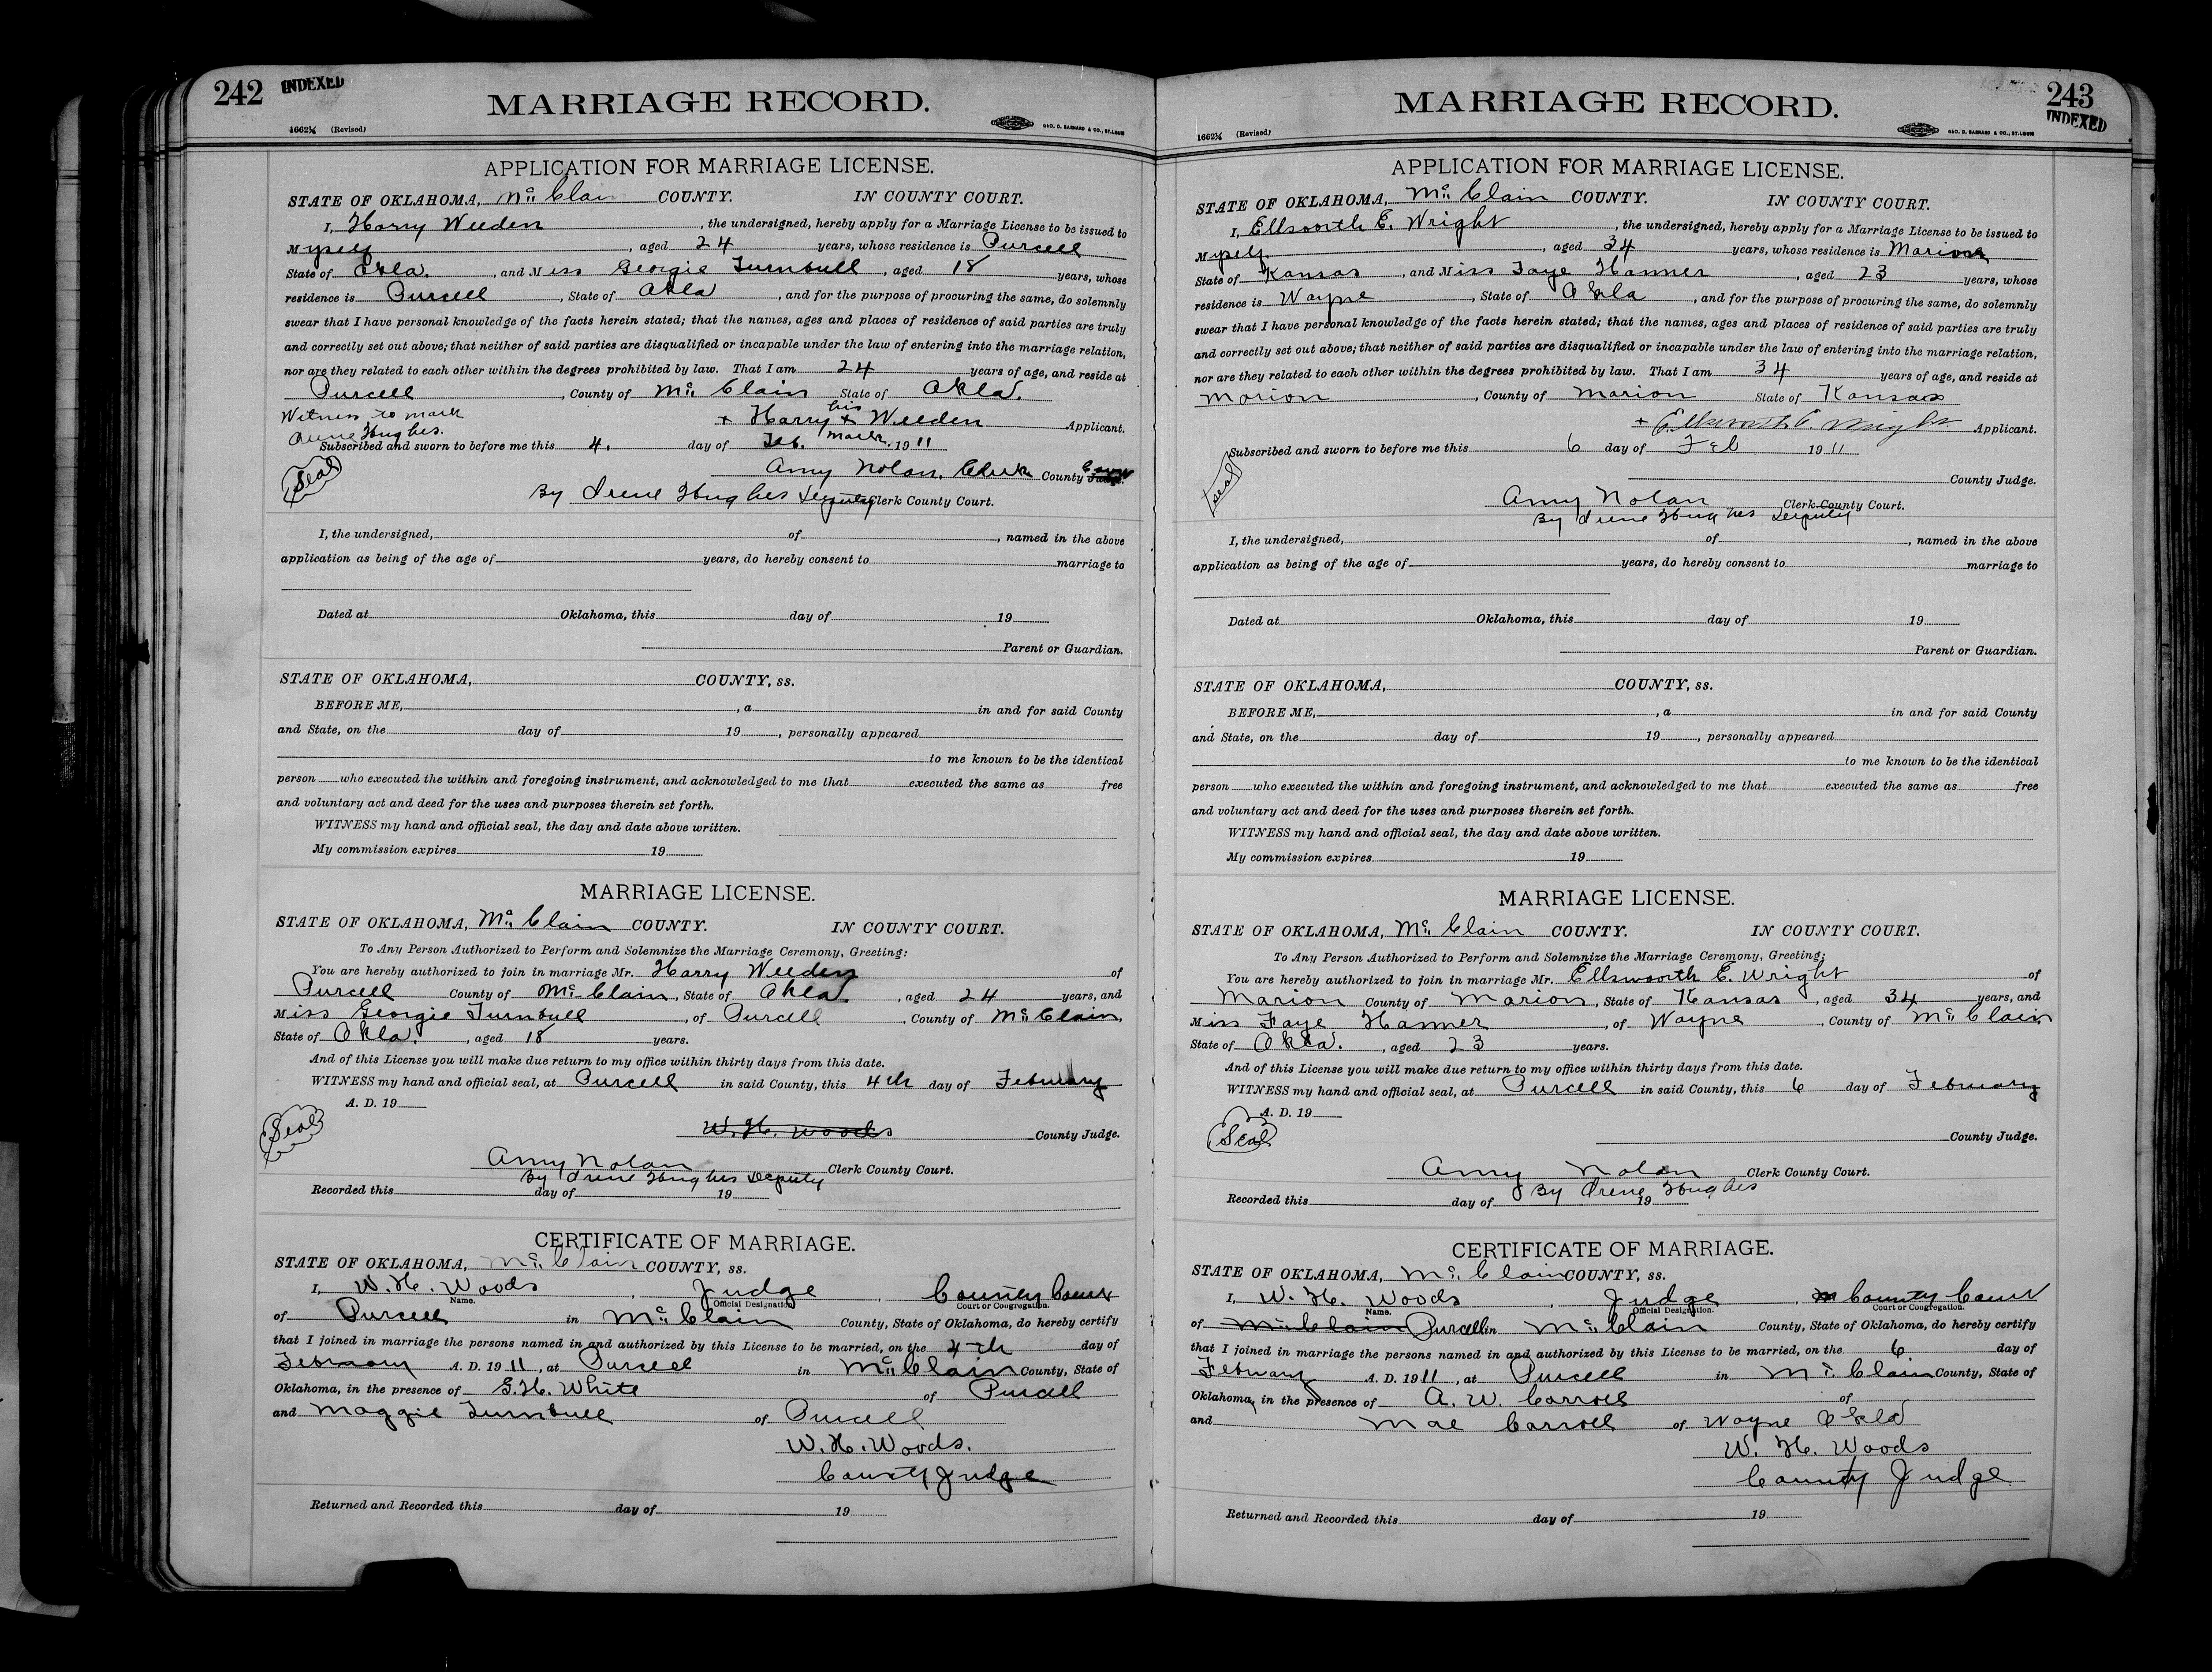 242 INDEXED
MARRIAGE RECORD.
1662½ (Revised)
GEO. D. BARNARD & CO., ST. LOUIS
APPLICATION FOR MARRIAGE LICENSE.
STATE OF OKLAHOMA, Mc Clain COUNTY. IN COUNTY COURT.
I, Harry Weeden, the undersigned, hereby apply for a Marriage License to be issued to
Myself, aged 24 years, whose residence is Purcell
State of Okla., and Miss Georgie Turnbull, aged 18 years, whose
residence is Purcell, State of Okla, and for the purpose of procuring the same, do solemnly
swear that I have personal knowledge of the facts herein stated; that the names, ages and places of residence of said parties are truly
and correctly set out above; that neither of said parties are disqualified or incapable under the law of entering into the marriage relation,
nor are they related to each other within the degrees prohibited by law. That I am 24 years of age, and reside at
Purcell, County of Mc Clain State of Okla.
Witness to mark his
Irene Hughes. + Harry + Weeden Applicant.
Subscribed and sworn to before me this 4. day of Feb. mark 1911
Seal Amy Nolan, Clerk County Court Judge.
By Irene Hughes Deputy Clerk County Court.
I, the undersigned, of , named in the above
application as being of the age of years, do hereby consent to marriage to
Dated at Oklahoma, this day of 19
Parent or Guardian.
STATE OF OKLAHOMA, COUNTY, ss.
BEFORE ME, , a in and for said County
and State, on the day of 19 , personally appeared
to me known to be the identical
person who executed the within and foregoing instrument, and acknowledged to me that executed the same as free
and voluntary act and deed for the uses and purposes therein set forth.
WITNESS my hand and official seal, the day and date above written.
My commission expires 19
MARRIAGE LICENSE.
STATE OF OKLAHOMA, Mc Clain COUNTY. IN COUNTY COURT.
To Any Person Authorized to Perform and Solemnize the Marriage Ceremony, Greeting:
You are hereby authorized to join in marriage Mr. Harry Weeden of
Purcell County of Mc Clain, State of Okla., aged 24 years, and
Miss Georgie Turnbull, of Purcell, County of Mc Clain,
State of Okla., aged 18 years.
And of this License you will make due return to my office within thirty days from this date.
WITNESS my hand and official seal, at Purcell in said County, this 4th day of February
A. D. 19
Seal W. H. Woods County Judge.
Amy Nolan Clerk County Court.
By Irene Hughes Deputy
Recorded this day of 19
CERTIFICATE OF MARRIAGE.
STATE OF OKLAHOMA, Mc Clain COUNTY, ss.
I, W. H. Woods, Judge, County Court
Name. Official Designation. Court or Congregation.
of Purcell in Mc Clain County, State of Oklahoma, do hereby certify
that I joined in marriage the persons named in and authorized by this License to be married, on the 4th day of
February A. D. 1911, at Purcell in Mc Clain County, State of
Oklahoma, in the presence of G. H. White of Purcell
and Maggie Turnbull of Purcell
W. H. Woods.
County Judge
Returned and Recorded this day of 19
243
INDEXED
MARRIAGE RECORD.
1662½ (Revised)
GEO. D. BARNARD & CO., ST. LOUIS
APPLICATION FOR MARRIAGE LICENSE.
STATE OF OKLAHOMA, Mc Clain COUNTY. IN COUNTY COURT.
I, Ellsworth E. Wright, the undersigned, hereby apply for a Marriage License to be issued to
Myself, aged 34 years, whose residence is Marion
State of Kansas, and Miss Faye Hanner, aged 23 years, whose
residence is Wayne, State of Okla, and for the purpose of procuring the same, do solemnly
swear that I have personal knowledge of the facts herein stated; that the names, ages and places of residence of said parties are truly
and correctly set out above; that neither of said parties are disqualified or incapable under the law of entering into the marriage relation,
nor are they related to each other within the degrees prohibited by law. That I am 34 years of age, and reside at
Marion, County of Marion State of Kansas
+ Ellsworth E. Wright Applicant.
Subscribed and sworn to before me this 6 day of Feb 1911
Seal County Judge.
Amy Nolan Clerk County Court.
By Irene Hughes Deputy
I, the undersigned, of , named in the above
application as being of the age of years, do hereby consent to marriage to
Dated at Oklahoma, this day of 19
Parent or Guardian.
STATE OF OKLAHOMA, COUNTY, ss.
BEFORE ME, , a in and for said County
and State, on the day of 19 , personally appeared
to me known to be the identical
person who executed the within and foregoing instrument, and acknowledged to me that executed the same as free
and voluntary act and deed for the uses and purposes therein set forth.
WITNESS my hand and official seal, the day and date above written.
My commission expires 19
MARRIAGE LICENSE.
STATE OF OKLAHOMA, Mc Clain COUNTY. IN COUNTY COURT.
To Any Person Authorized to Perform and Solemnize the Marriage Ceremony, Greeting:
You are hereby authorized to join in marriage Mr. Ellsworth E. Wright of
Marion County of Marion, State of Kansas, aged 34 years, and
Miss Faye Hanner, of Wayne, County of Mc Clain,
State of Okla., aged 23 years.
And of this License you will make due return to my office within thirty days from this date.
WITNESS my hand and official seal, at Purcell in said County, this 6 day of February
A. D. 19
Seal County Judge.
Amy Nolan Clerk County Court.
By Irene Hughes
Recorded this day of 19
CERTIFICATE OF MARRIAGE.
STATE OF OKLAHOMA, Mc Clain COUNTY, ss.
I, W. H. Woods, Judge, County Court
Name. Official Designation. Court or Congregation.
of Mc Clain Purcell in Mc Clain County, State of Oklahoma, do hereby certify
that I joined in marriage the persons named in and authorized by this License to be married, on the 6 day of
February A. D. 1911, at Purcell in Mc Clain County, State of
Oklahoma, in the presence of A. W. Carroll of
and Mae Carroll of Wayne Okla
W. H. Woods
County Judge
Returned and Recorded this day of 19